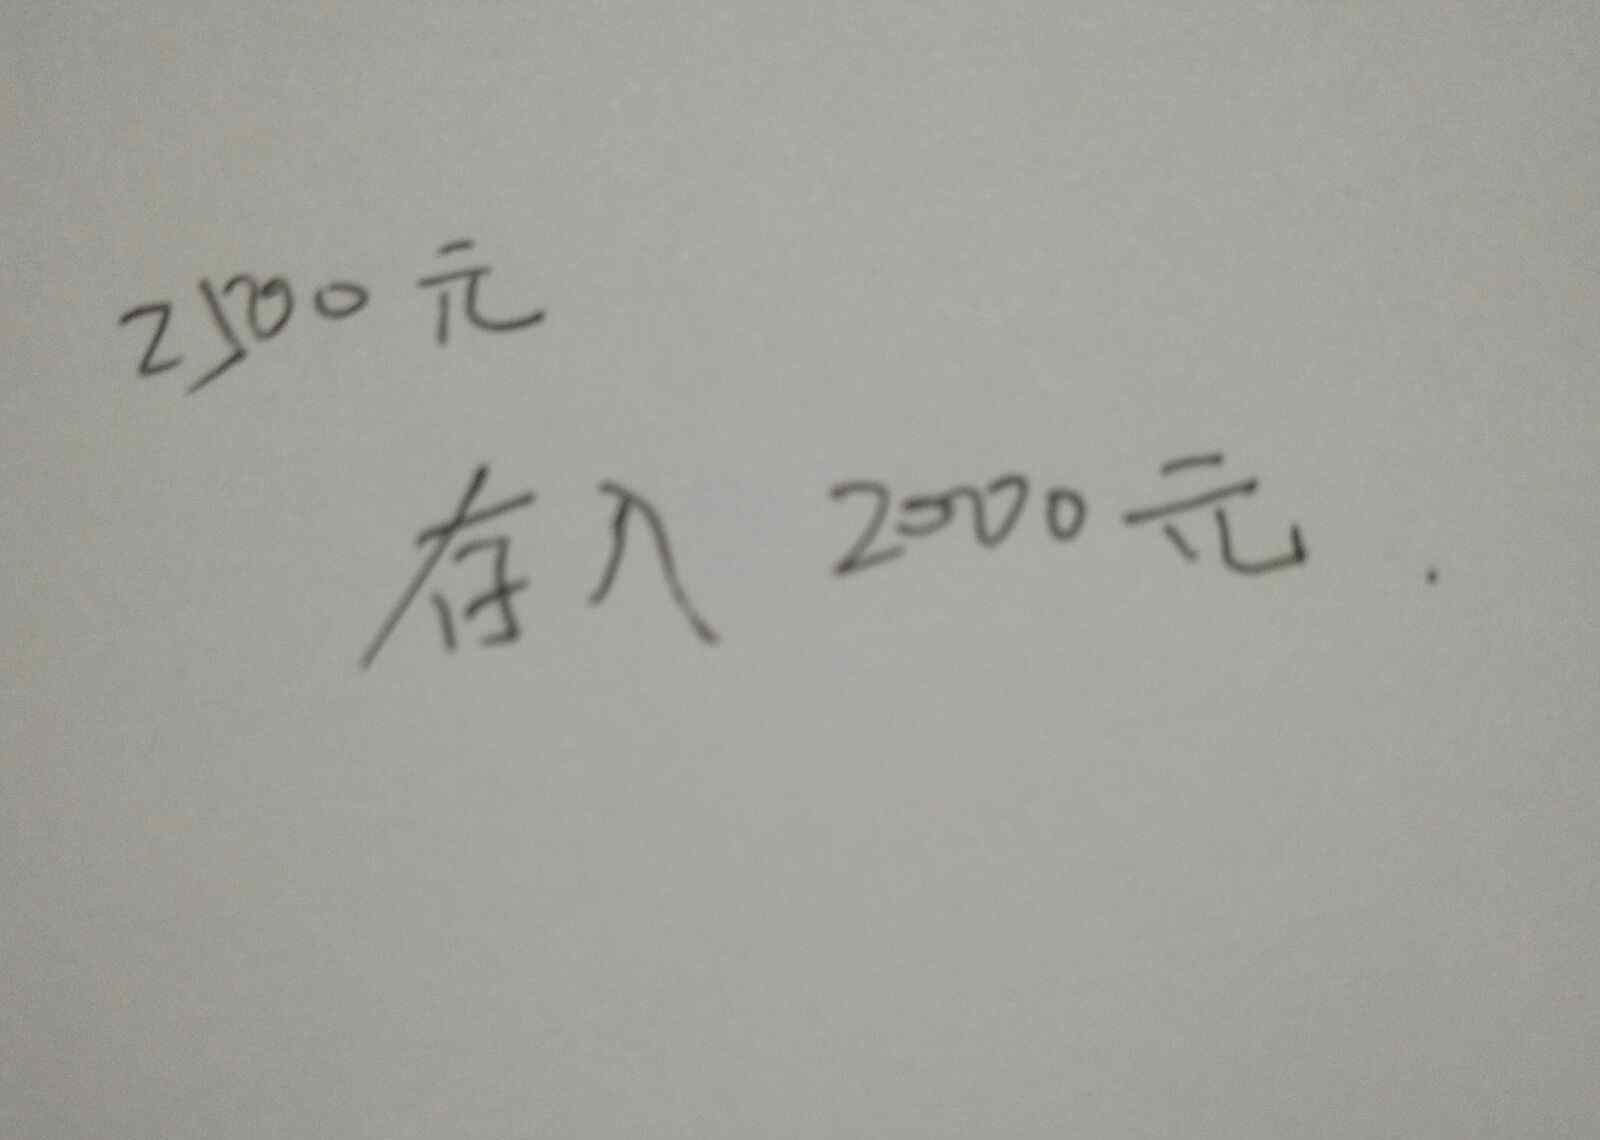 2500元
存入 2000元.